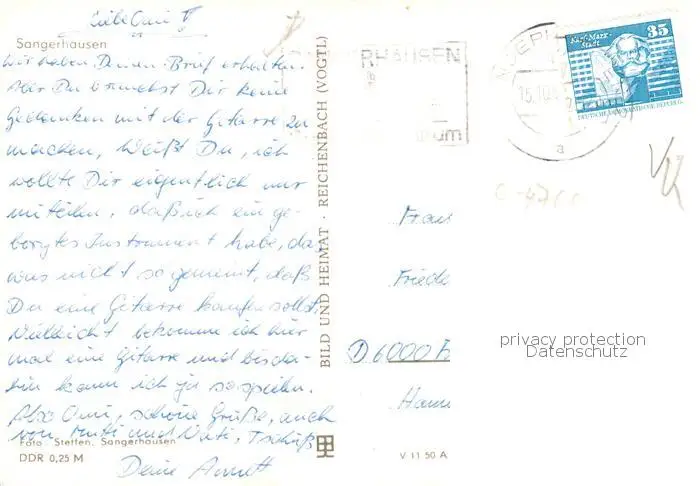 Liebe Omi!
Sangerhausen
Wir haben Deinen Brief erhalten.
Aber Du brauchst Dir keine
Gedanken mit der Gitarre zu
machen, Weißt Du, ich
wollte Dir eigentlich nur
mitteilen, daß ich ein ge-
borgtes Instrument habe, da
was nicht so gemeint, daß
Du eine Gitarre kaufen sollst.
Vielleicht bekomme ich hier
mal eine Gitarre und bis da-
hin kann ich ja so spielen.
Also Omi, schöne Grüße, auch
von Mutti und Vati, Tschüß
Foto: Steffen, Sangerhausen
DDR 0,25 M
Deine Annett
BILD UND HEIMAT · REICHENBACH (VOGTL)
V 11 50 A
35
Karl-Marx-
Stadt
DEUTSCHE DEMOKRATISCHE REPUBLIK
a
Frau
Friede
D 6000 F
Hann
privacy protection
Datenschutz